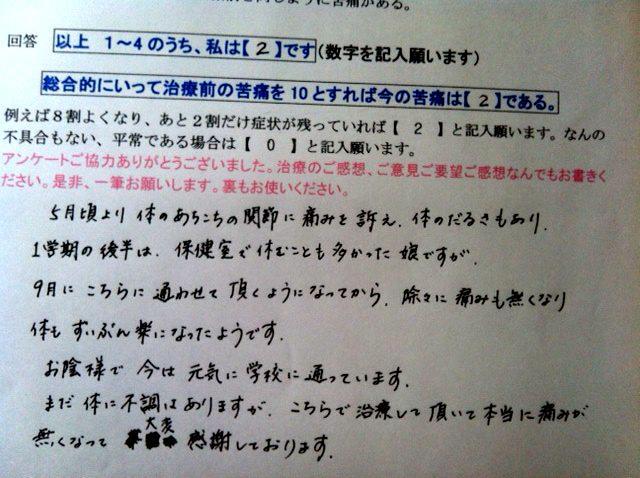 苦痛がある。
回答 以上 1～4のうち、私は【 2 】です(数字を記入願います)
総合的にいって治療前の苦痛を10とすれば今の苦痛は【 2 】である。
例えば8割よくなり、あと2割だけ症状が残っていれば【 2 】と記入願います。なんの
不具合もない、平常である場合は【 0 】と記入願います。
アンケートご協力ありがとうございました。治療のご感想、ご意見ご要望ご感想なんでもお書きく
ださい。是非、一筆お願いします。裏もお使いください。
5月頃より 体のあちこちの関節に痛みを訴え、体のだるさもあり、
1学期の後半は、保健室で休むことも多かった娘ですが、
9月に こちらに通わせて頂くようになってから、除々に痛みも無くなり
体も ずいぶん楽になったようです。
お陰様で 今は 元気に学校に通っています。
まだ 体に不調はありますが、こちらで治療して頂いて本当に痛みが
無くなって 大変 感謝しております。